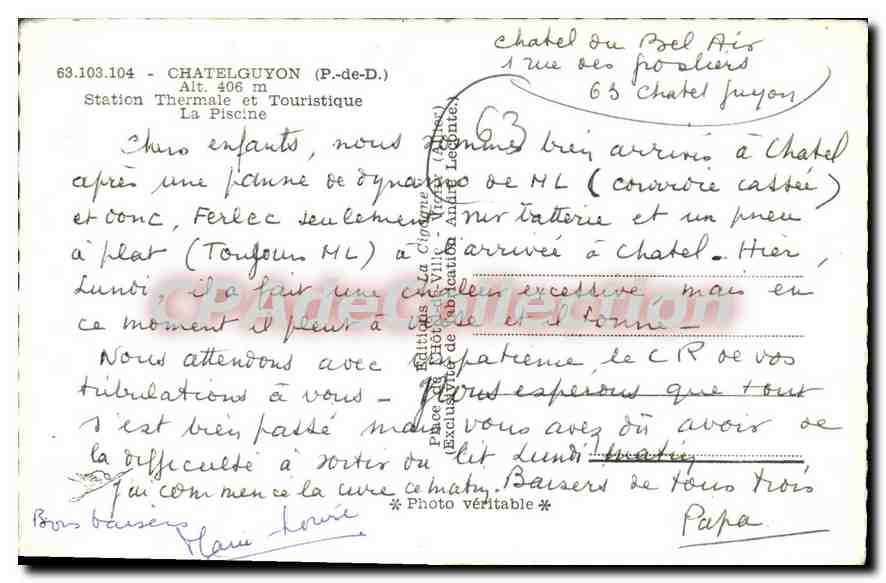 63.103.104 - CHATELGUYON (P.-de-D.)
Alt. 406 m
Station Thermale et Touristique
La Piscine
Chatel du Bel Air
1 rue des groseliers
63 Chatel Guyon
63
Chers enfants, nous sommes bien arrivés à Chatel
après une panne de dynamo de ML (courroie cassée)
et donc, seulement sur batterie et un pneu
à plat (Toujours ML) à l'arrivée à Chatel. Hier,
Lundi, il a fait une chaleur excessive, mais en
ce moment il pleut à verse et il tonne -
Nous attendons avec impatience, le CR de vos
tribulations à vous - Nous esperons que tout
s'est bien passé mais vous avez dû avoir de
la difficulté à sortir du lit Lundi matin
J'ai commencé la cure ce matin. Baisers de tous trois
Papa
Bons baisers
Marie Louise
Editions "La Cigogne"
Place de l'Hôtel-de-Ville - Vichy (Allier)
(Exclusivité de Fabrication André Leconte.)
* Photo véritable *
CPAdeCollection